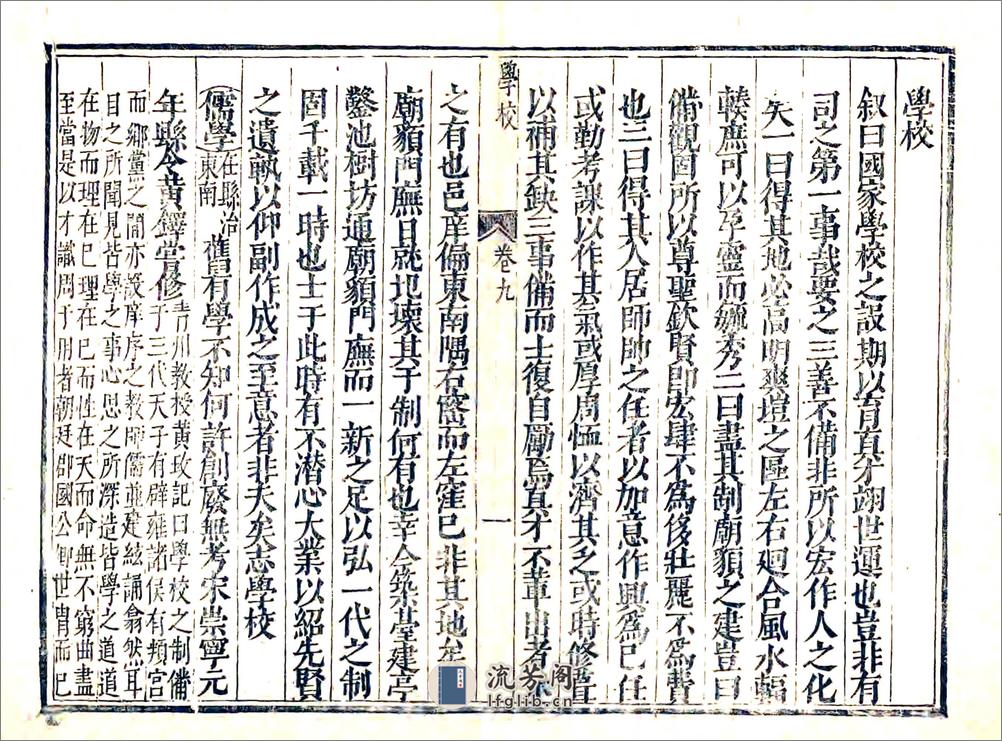 學校
叙曰國家學校之設期以育真才翊世運也豈非有
司之第一事哉要之三善不備非所以宏作人之化
矣一曰得其地必高明爽塏之區左右廻合風水輻
輳庶可以孕靈而毓秀二曰盡其制廟貌之建豈曰
備觀固所以尊聖欽賢卽宏肆不為侈壯麗不為費
也三曰得其人居師帥之任者以加意作興爲己任
或勤考課以作其氣或厚周恤以濟其乏或時修葺
以補其缺三事備而士復自勵焉真才不輩出者未
學校 卷九 一
之有也邑庠偏東南隅右密而左窪已非其地矣
廟貌門廡日就圮壞其于制何有也幸今築臺建亭
鑿池樹坊通廟貌門廡而一新之足以弘一代之制
固千載一時也士于此時有不潛心大業以紹先賢
之遺軌以仰副作成之至意者非夫矣志學校
儒學 在縣治東南 舊有學不知何許創廢無考宋崇寧元
年縣令黃鐸嘗修 青州教授黃攻記曰學校之制備于三代天子有辟雍諸侯有頖宮
而鄉黨之間亦設庠序之教師儒並建絃誦翕然耳
目之所聞見皆學之事心思之所深造皆學之道道
在物而理在已理在已而性在天而命無不窮曲盡
至當是以才識周于用者朝廷郡國公卿世胄而已
流芳阁
lfglib.cn